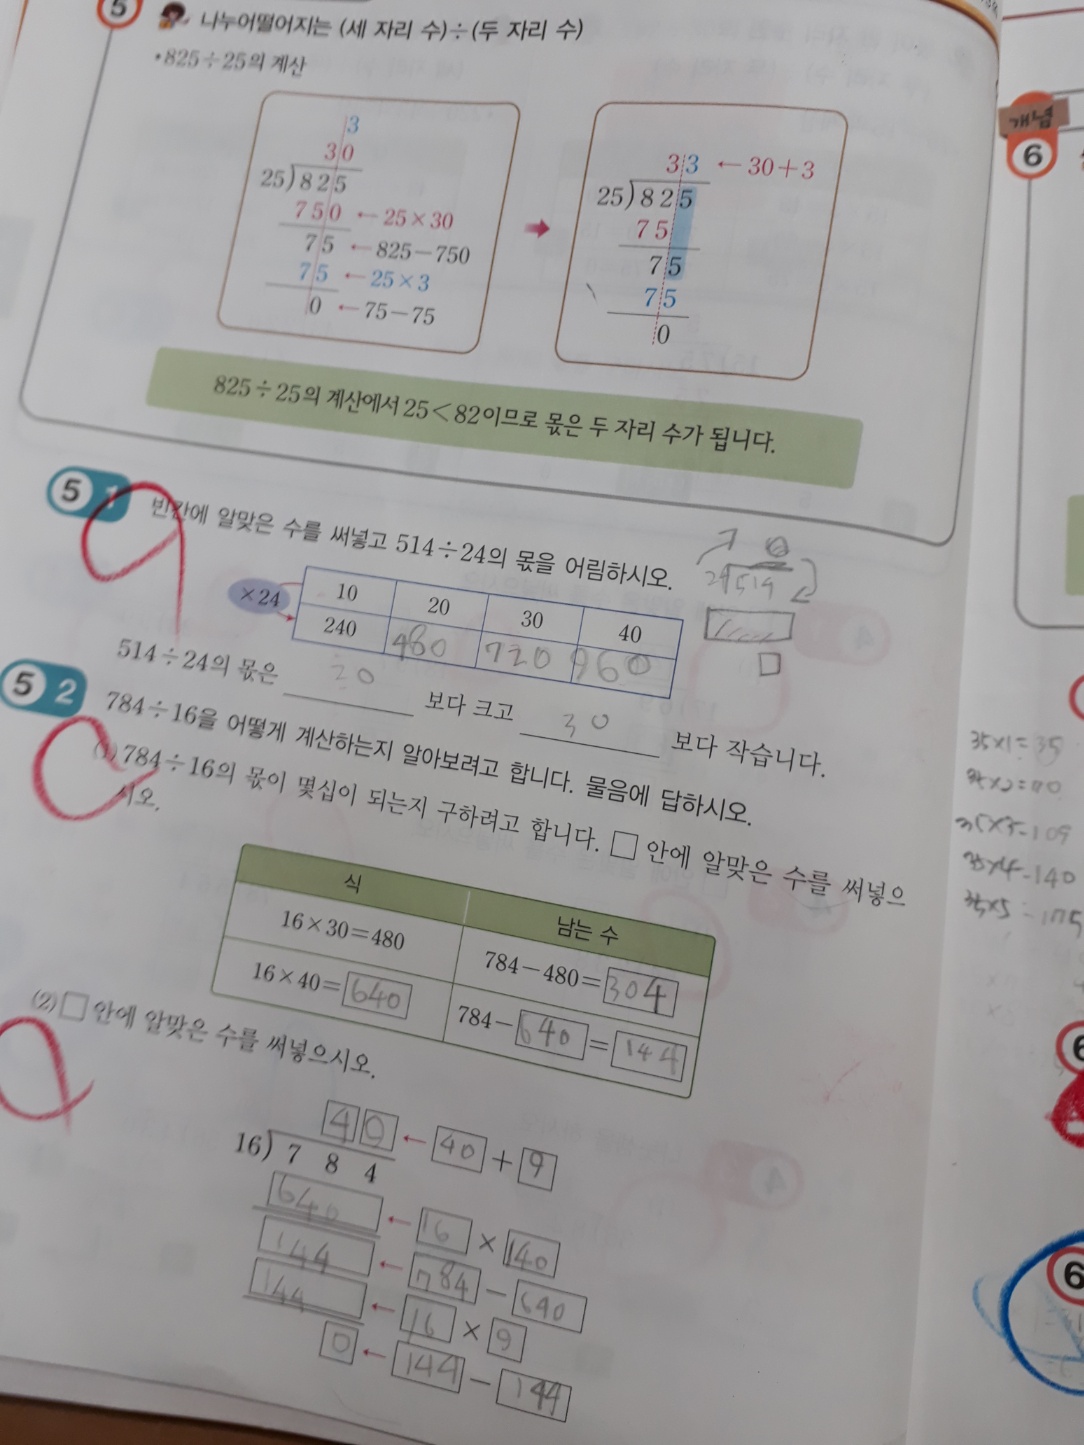 5
나누어떨어지는 (세 자리 수)÷(두 자리 수)
•825÷25의 계산
3
30
25)825
750 ←25×30
75 ←825−750
75 ←25×3
0 ←75−75
33 ←30+3
25)825
75
75
75
0
825÷25의 계산에서 25<82이므로 몫은 두 자리 수가 됩니다.
개념
6
5 1 빈칸에 알맞은 수를 써넣고 514÷24의 몫을 어림하시오.
×24
10 20 30 40
240 480 720 960
514÷24의 몫은 20 보다 크고 30 보다 작습니다.
5 2 784÷16을 어떻게 계산하는지 알아보려고 합니다. 물음에 답하시오.
(1) 784÷16의 몫이 몇십이 되는지 구하려고 합니다. □ 안에 알맞은 수를 써넣으
시오.
식 남는 수
16×30=480 784−480=304
16×40=640 784−640=144
(2) □ 안에 알맞은 수를 써넣으시오.
40+9
16)784
640 ← 16×
144 ← 784−640
144 ← 16×9
0 ← 144−144
35×1=35
35×4=140
6